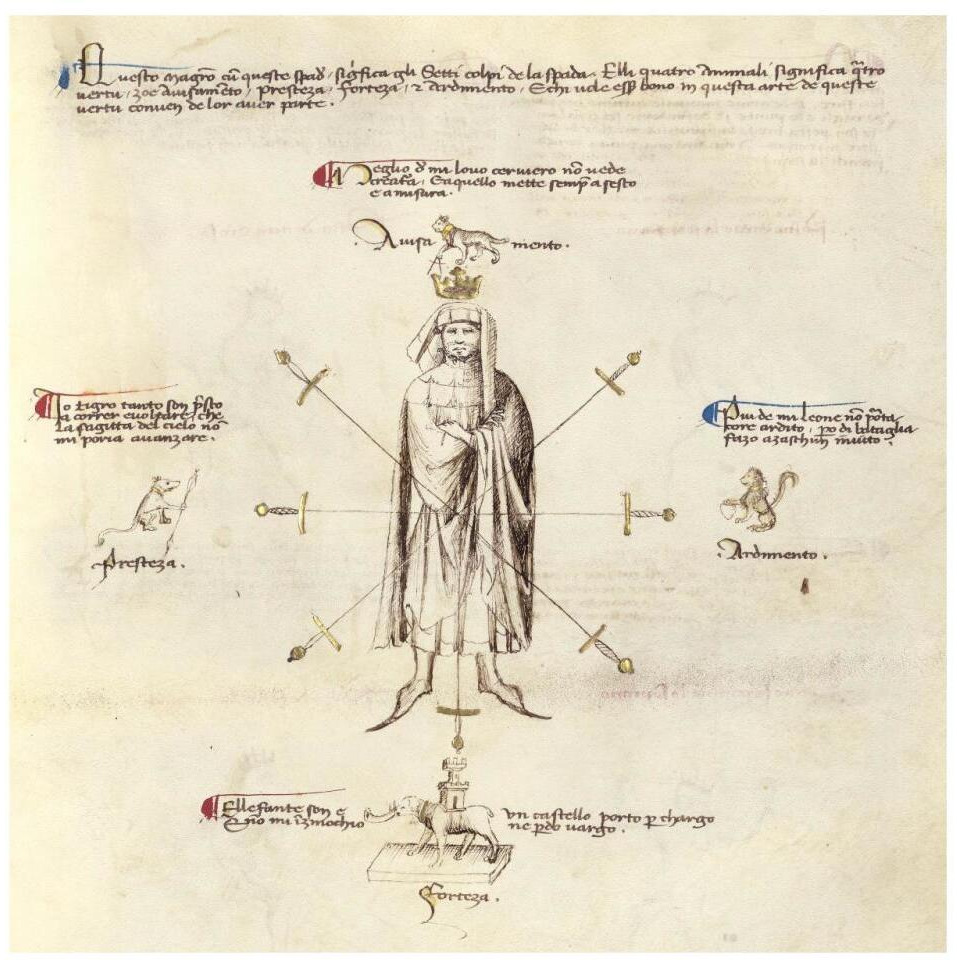 Questo magro cū queste spad. significa gli Setti colpi de la spada. Elli quatro animali significa q̄tro
vertu, zoe avisamēto, presteza, forteza, ⁊ ardimento. E chi vole essē bono in questa arte de queste
vertu conven de lor aver parte.
Meglio d̄ mi lovo cerviero nō vede
creatura. Eaquello mette semp̄ a sesto
e a misura.
Avisa mento.
Io tigro tanto son p̄sto
a correr e voltare, che
la sagitta del cielo nō
mi poria avanzare.
Presteza.
Piu de mi leone nō porta
core ardito, po di bataglia
fazo azaschun invito.
Ardimento.
Ellefante son e un castello porto p chargo
E nō mi inzinochio ne p̄do vargo.
Forteza.